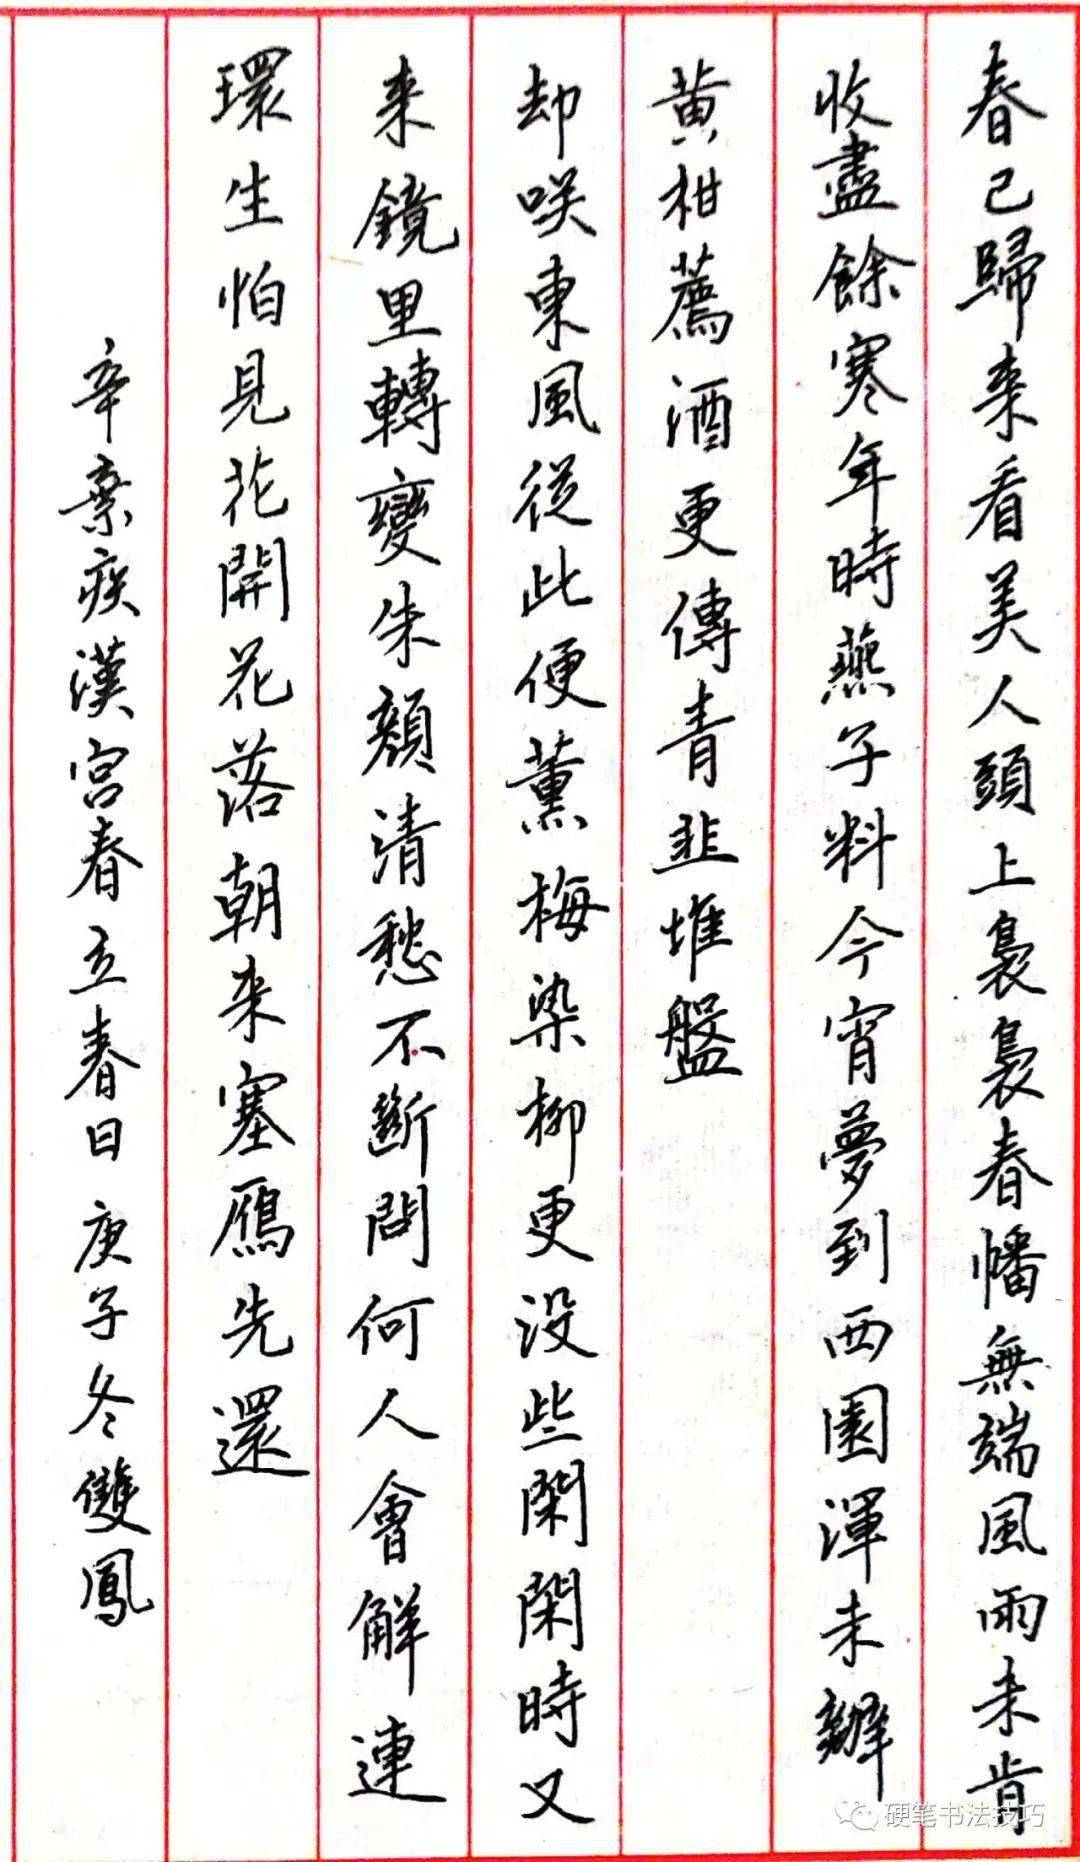 春已歸来看美人頭上裊裊春幡無端風雨未肯
收盡餘寒年時燕子料今宵夢到西園渾未辦
黄柑薦酒更傳青韭堆盤
却咲東風從此便薰梅染柳更没些閑閑時又
来鏡里轉變朱顔清愁不斷問何人會解連
環生怕見花開花落朝来塞鴈先還
辛棄疾漢宫春立春日庚子冬雙鳳
硬笔书法技巧